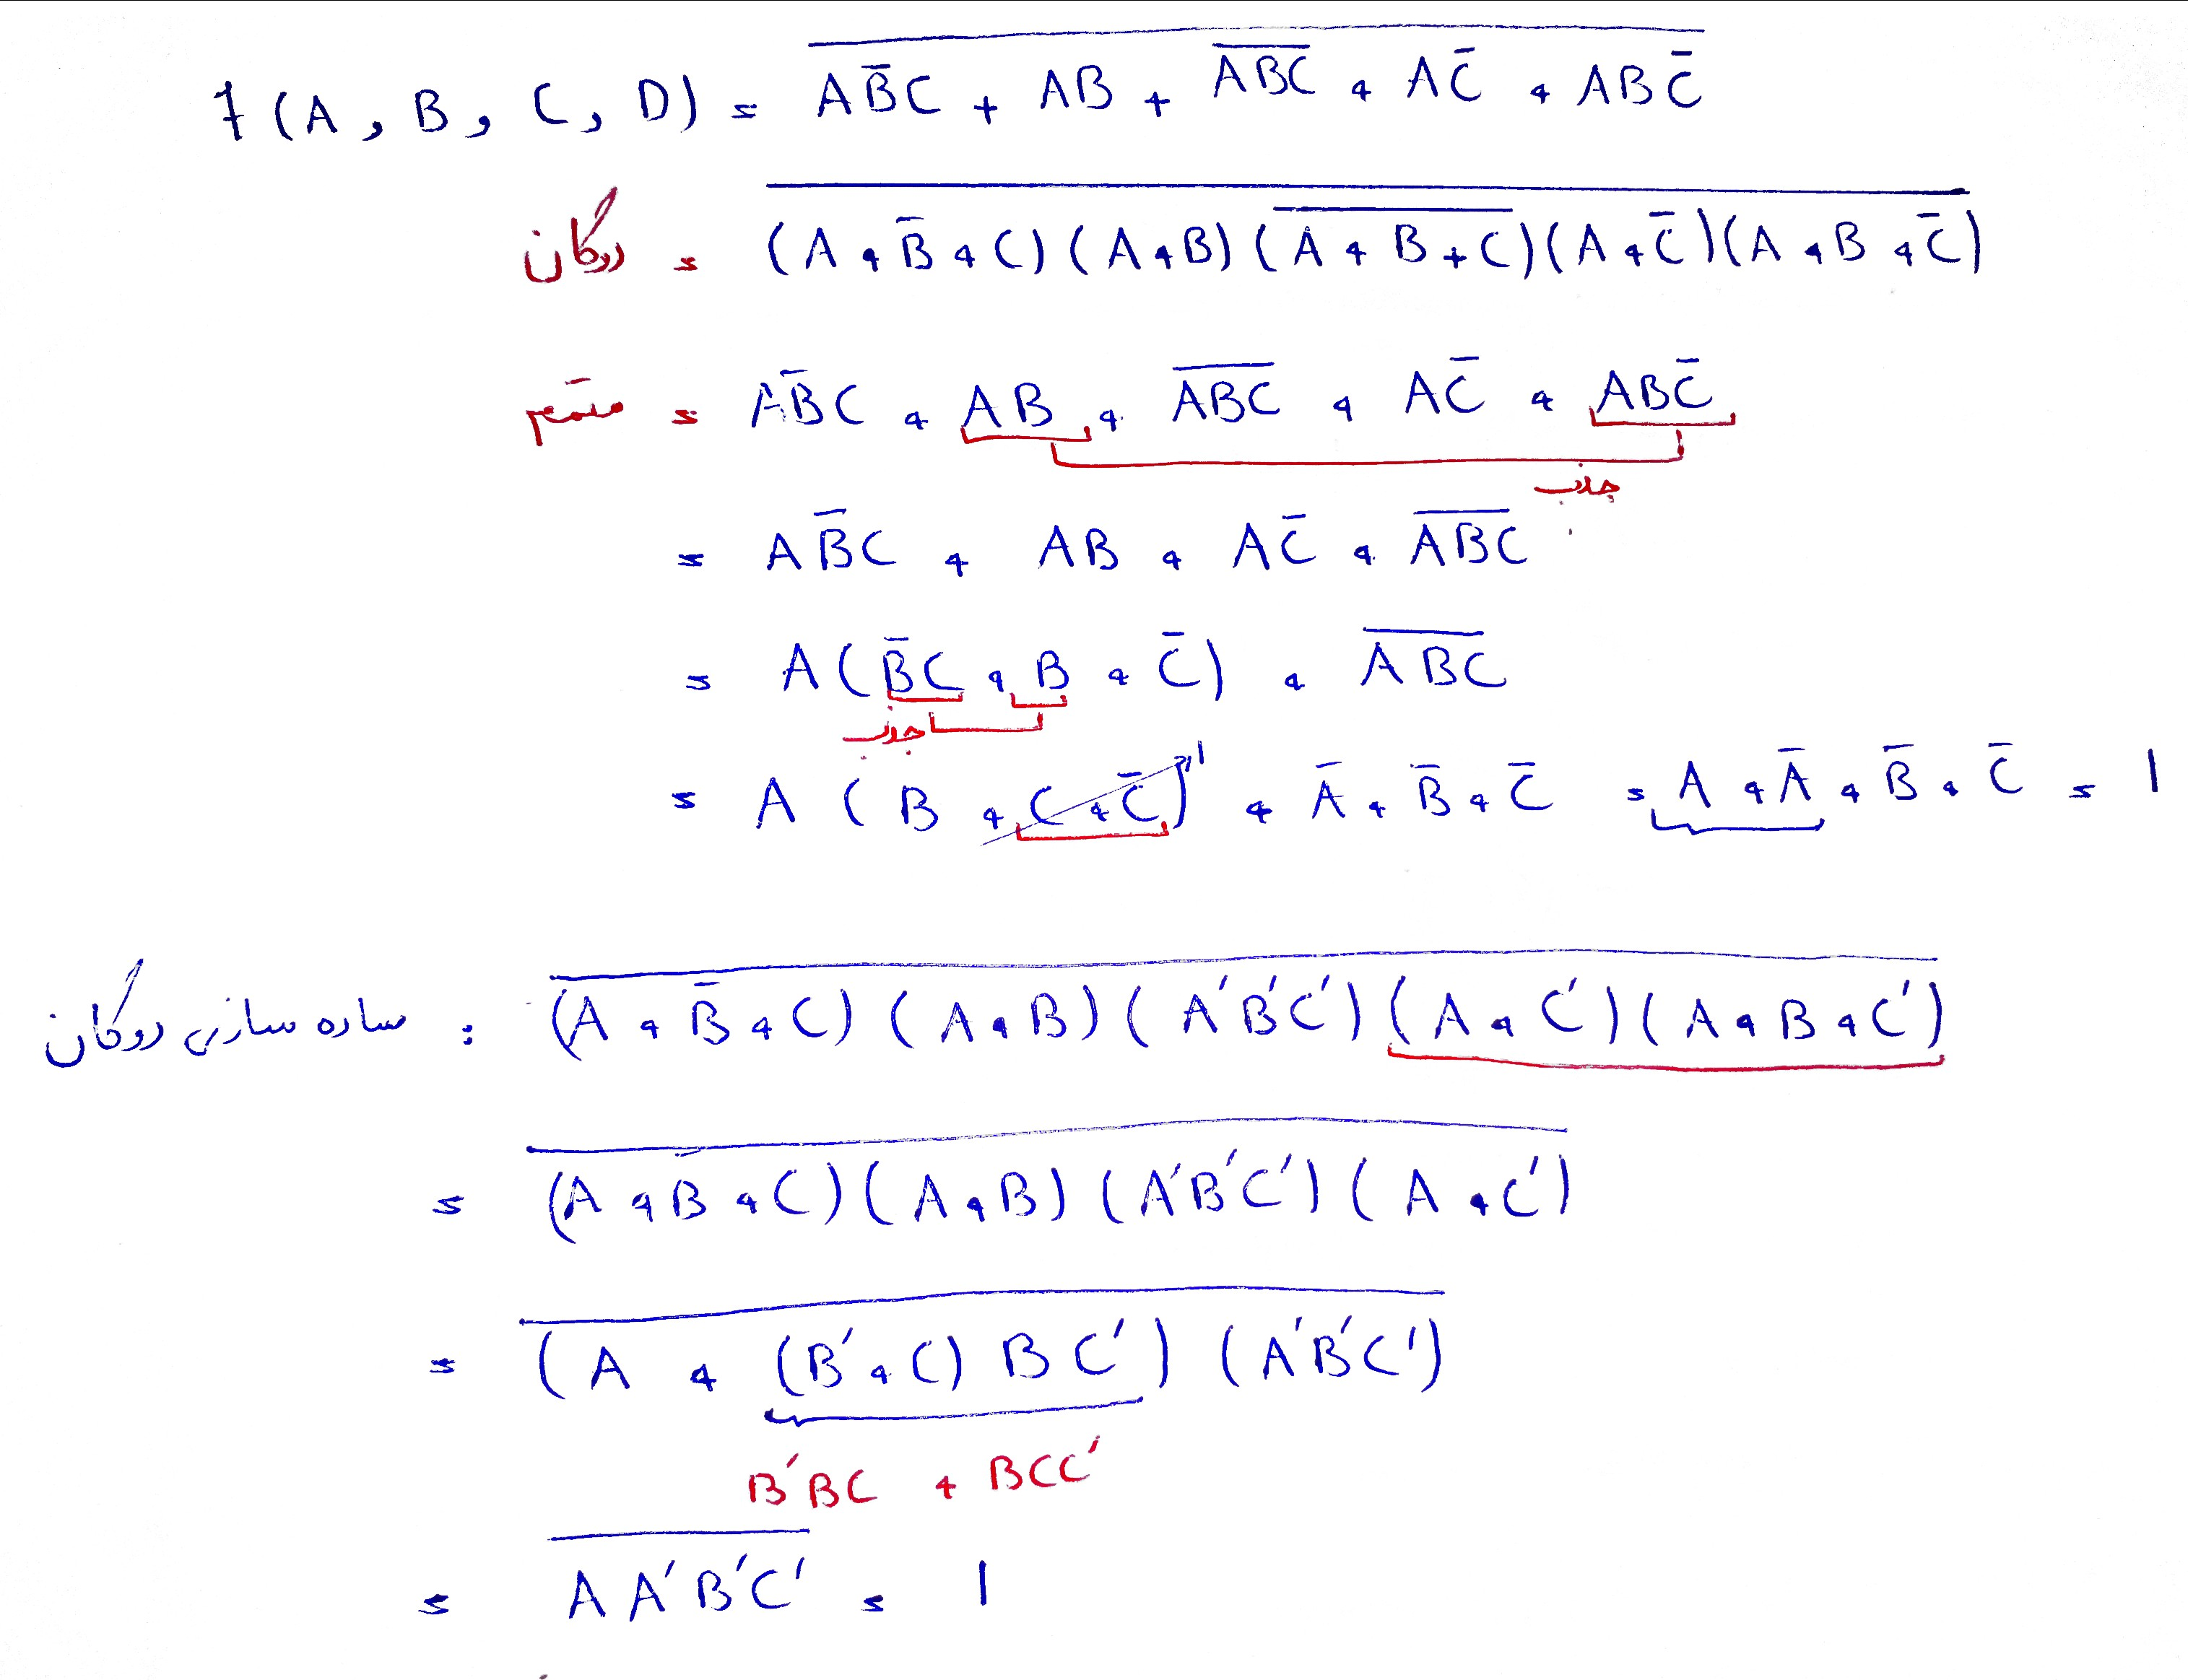 f(A, B, C, D) = \overline{A\bar{B}C + AB + \overline{ABC} + A\bar{C} + AB\bar{C}}
دوگان = \overline{(A + \bar{B} + C)(A + B)(\overline{A + B + C})(A + \bar{C})(A + B + \bar{C})}
متمم = A\bar{B}C + AB + \overline{ABC} + A\bar{C} + AB\bar{C}
جذب
= A\bar{B}C + AB + A\bar{C} + \overline{ABC}
= A(\bar{B}C + B + \bar{C}) + \overline{ABC}
جذب
= A(B + C + \bar{C})^1 + \bar{A} + \bar{B} + \bar{C} = A + \bar{A} + \bar{B} + \bar{C} = 1
ساده سازی دوگان : \overline{(A + \bar{B} + C)(A + B)(A'B'C')(A + C')(A + B + C')}
= \overline{(A + \bar{B} + C)(A + B)(A'B'C')(A + C')}
= \overline{(A + (B' + C)BC')(A'B'C')}
B'BC + BCC'
= \overline{AA'B'C'} = 1